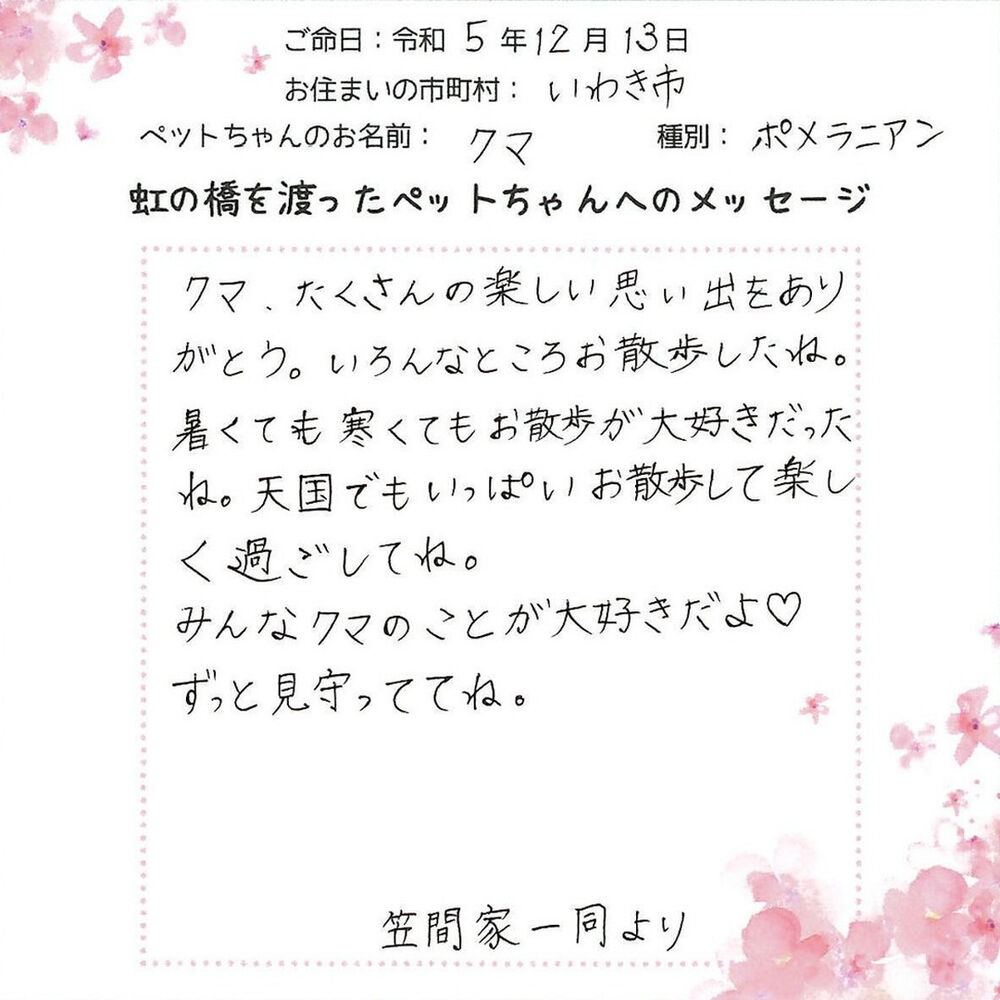 ご命日：令和 5 年12月13日
お住まいの市町村： いわき市
ペットちゃんのお名前： クマ 種別： ポメラニアン
虹の橋を渡ったペットちゃんへのメッセージ
クマ、たくさんの楽しい思い出をあり
がとう。いろんなところお散歩したね。
暑くても寒くてもお散歩が大好きだった
ね。天国でもいっぱいお散歩して楽し
く過ごしてね。
みんなクマのことが大好きだよ♡
ずっと見守っててね。
笠間家一同より